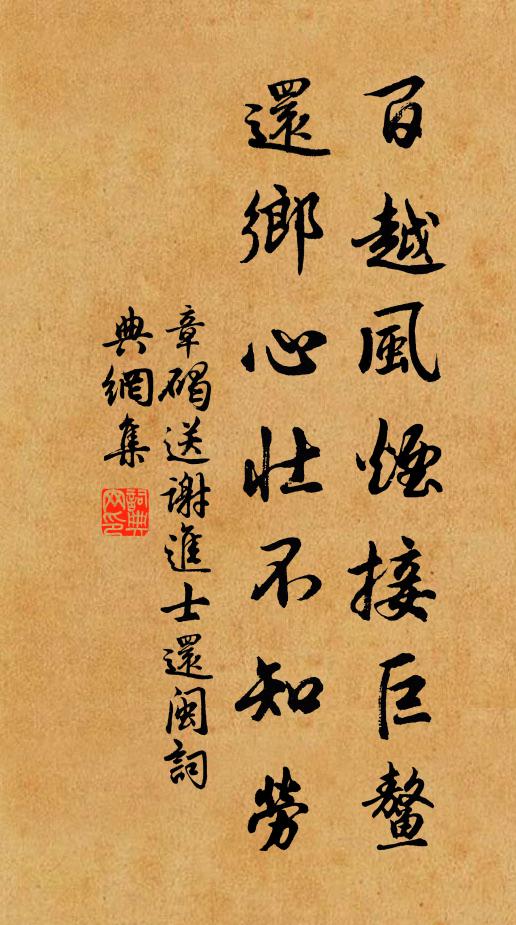 百越風煙接巨鰲
還鄉心壯不知勞
章碣送謝進士還閩詞
典網集
詞典
网印